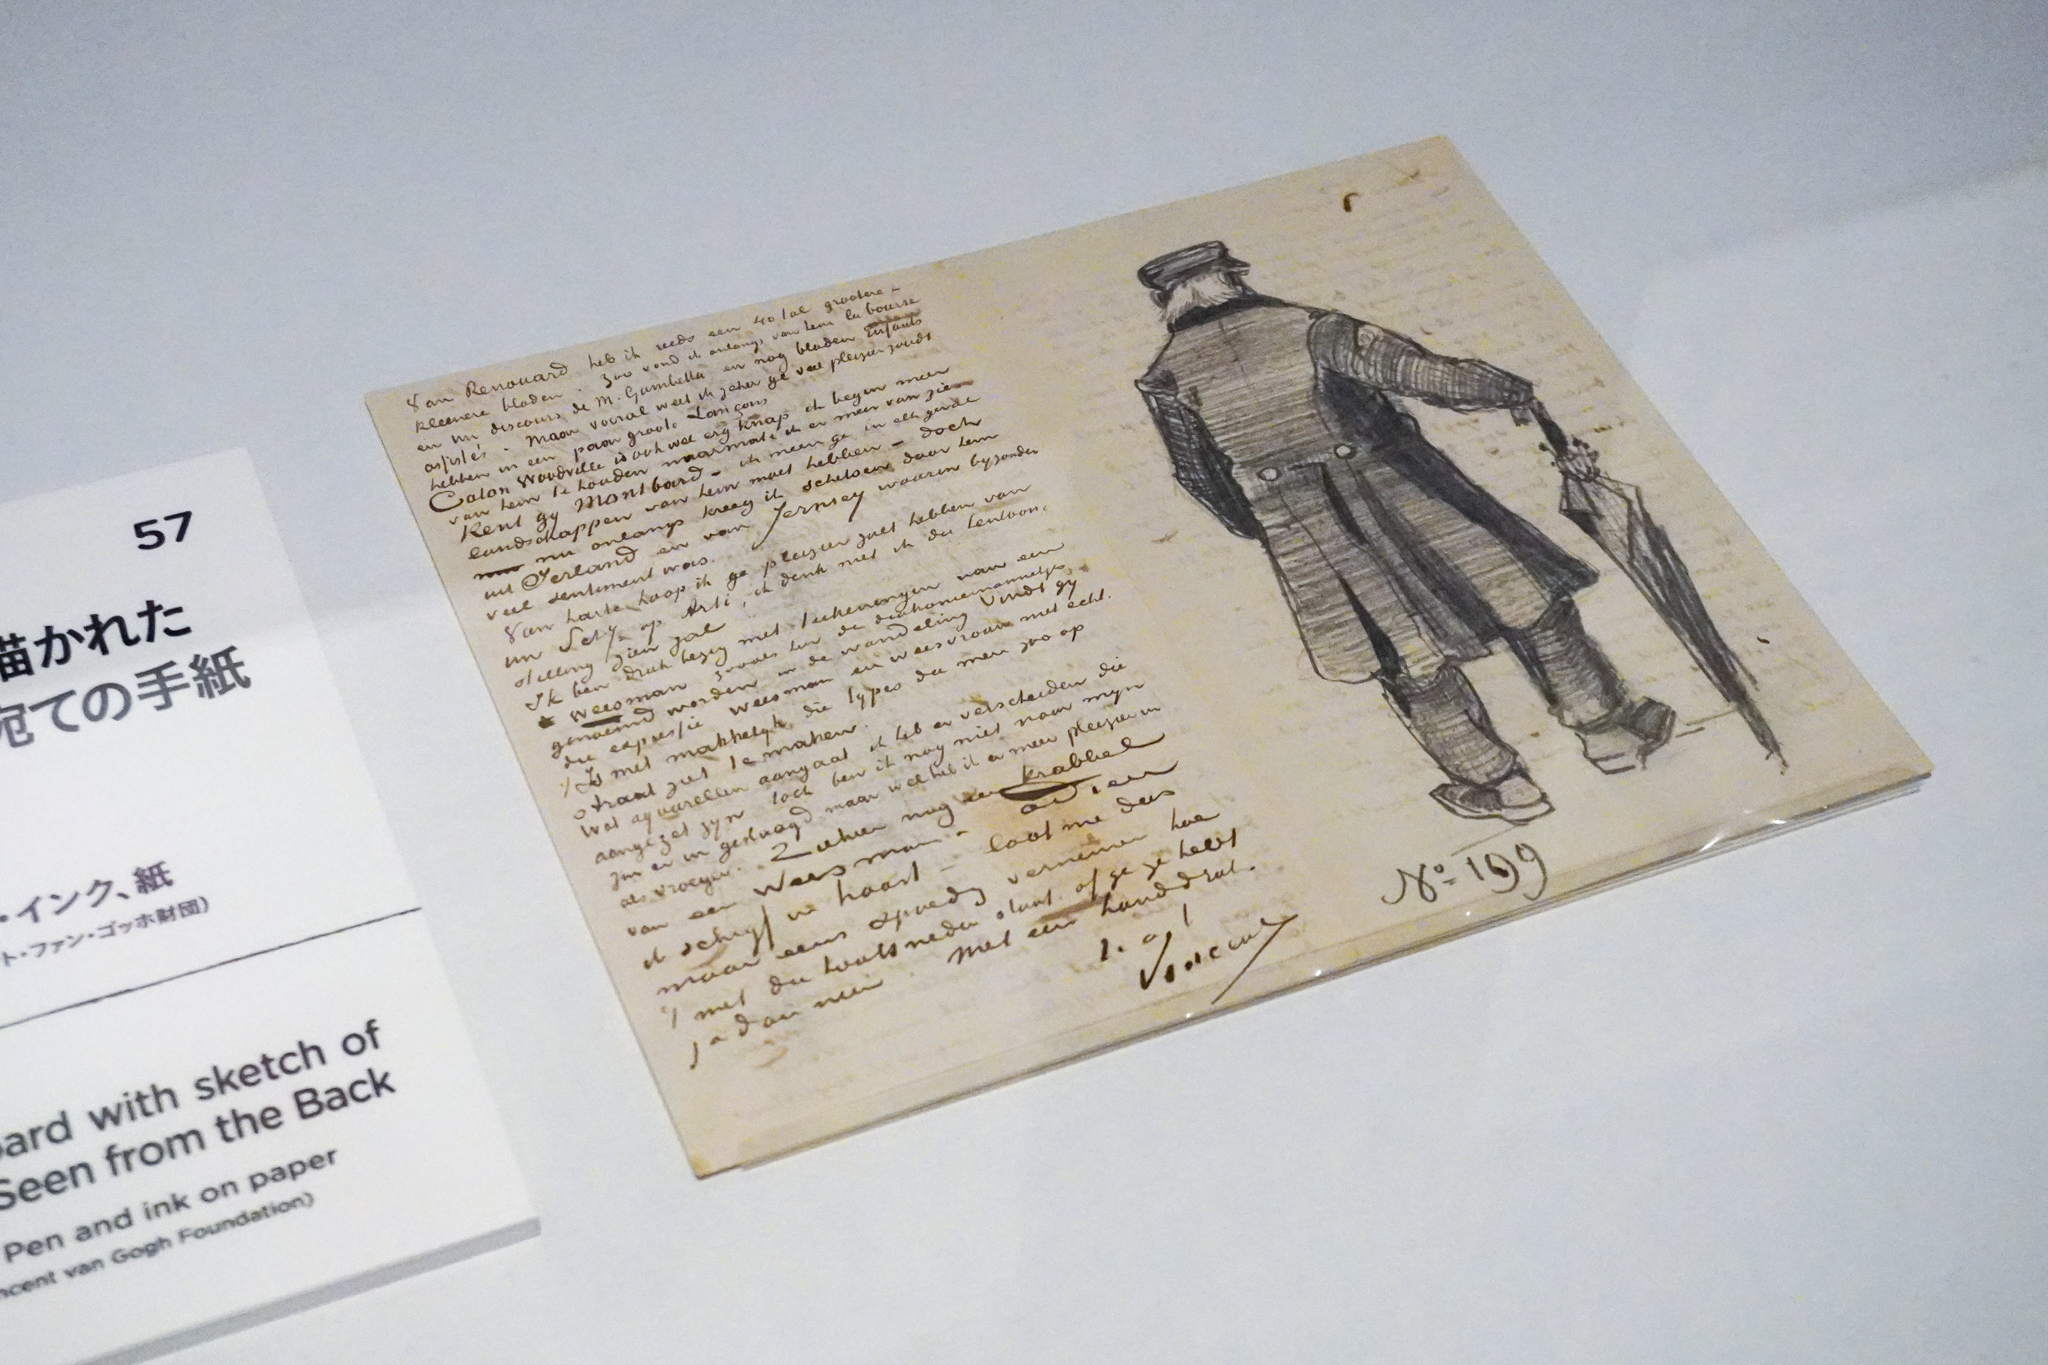 57
描かれた
宛ての手紙
・インク、紙
ト・ファン・ゴッホ財団)
ard with sketch of
Seen from the Back
Pen and ink on paper
ncent van Gogh Foundation)
Van Renouard heb ik reeds een 40 tal grootere –
kleenere bladen. Zoo vond ik onlangs van hem la bourse
en un discours de M. Gambetta en nog bladen Enfants
assistés. Maar vooral weet ik zeker ge veel pleizier zoudt
hebben in een paar groote Lançons
Caton Woodville is ook wel erg knap ik begin meer
van hem te houden naarmate ik er meer van zie
Kent gy Montbard – ik meen ge in elk geval
landschappen van hem moet hebben – doch
nu onlangs kreeg ik schetsen door hem
uit Ierland en van Jersey waarin byzonder
veel sentiment was.
Van harte hoop ik ge pleizier zult hebben van
uw op Arti, ik denk niet ik die tentoon-
stelling zien zal
Ik ben druk bezig met teekeningen van een
weesman zooals hier de diakoniemannetjes
genoemd worden in de wandeling Vindt gy
die expressie weesman en weesvrouw niet echt.
't Is niet makkelyk die types die men zoo op
straat ziet te maken.
Wat aquarellen aangaat ik heb er verscheiden die
aangezet zyn toch ben ik nog niet naar myn
zin er in geslaagd maar wel heb ik er meer pleizier in
als vroeger. Ziehier nog een krabbel
van een weesman – adieu
ik schryf in haast – laat me dus
maar eens spoedig vernemen hoe
't met die houtsneden staat of ge ze hebt
ja dan neen Met een handdruk.
t. à t.
Vincent
No 199